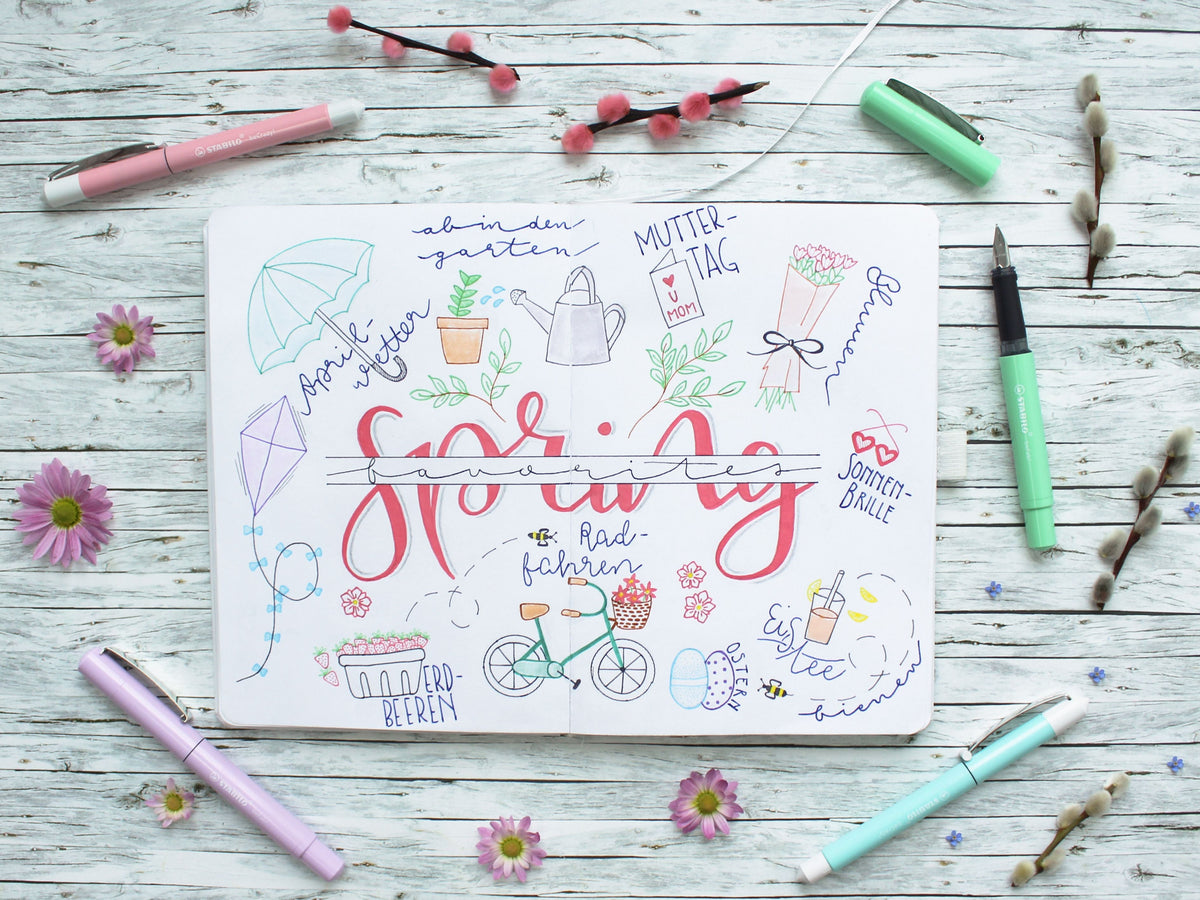 STABILO beCrazy!
ab in den
garten
MUTTER-
TAG
U
MOM
Blumen
April-
wetter
Spring
favorites
SONNEN-
BRILLE
STABILO
Rad-
fahren
ERD-
BEEREN
OSTERN
Eis
tee
bienen
STABILO
STABILO